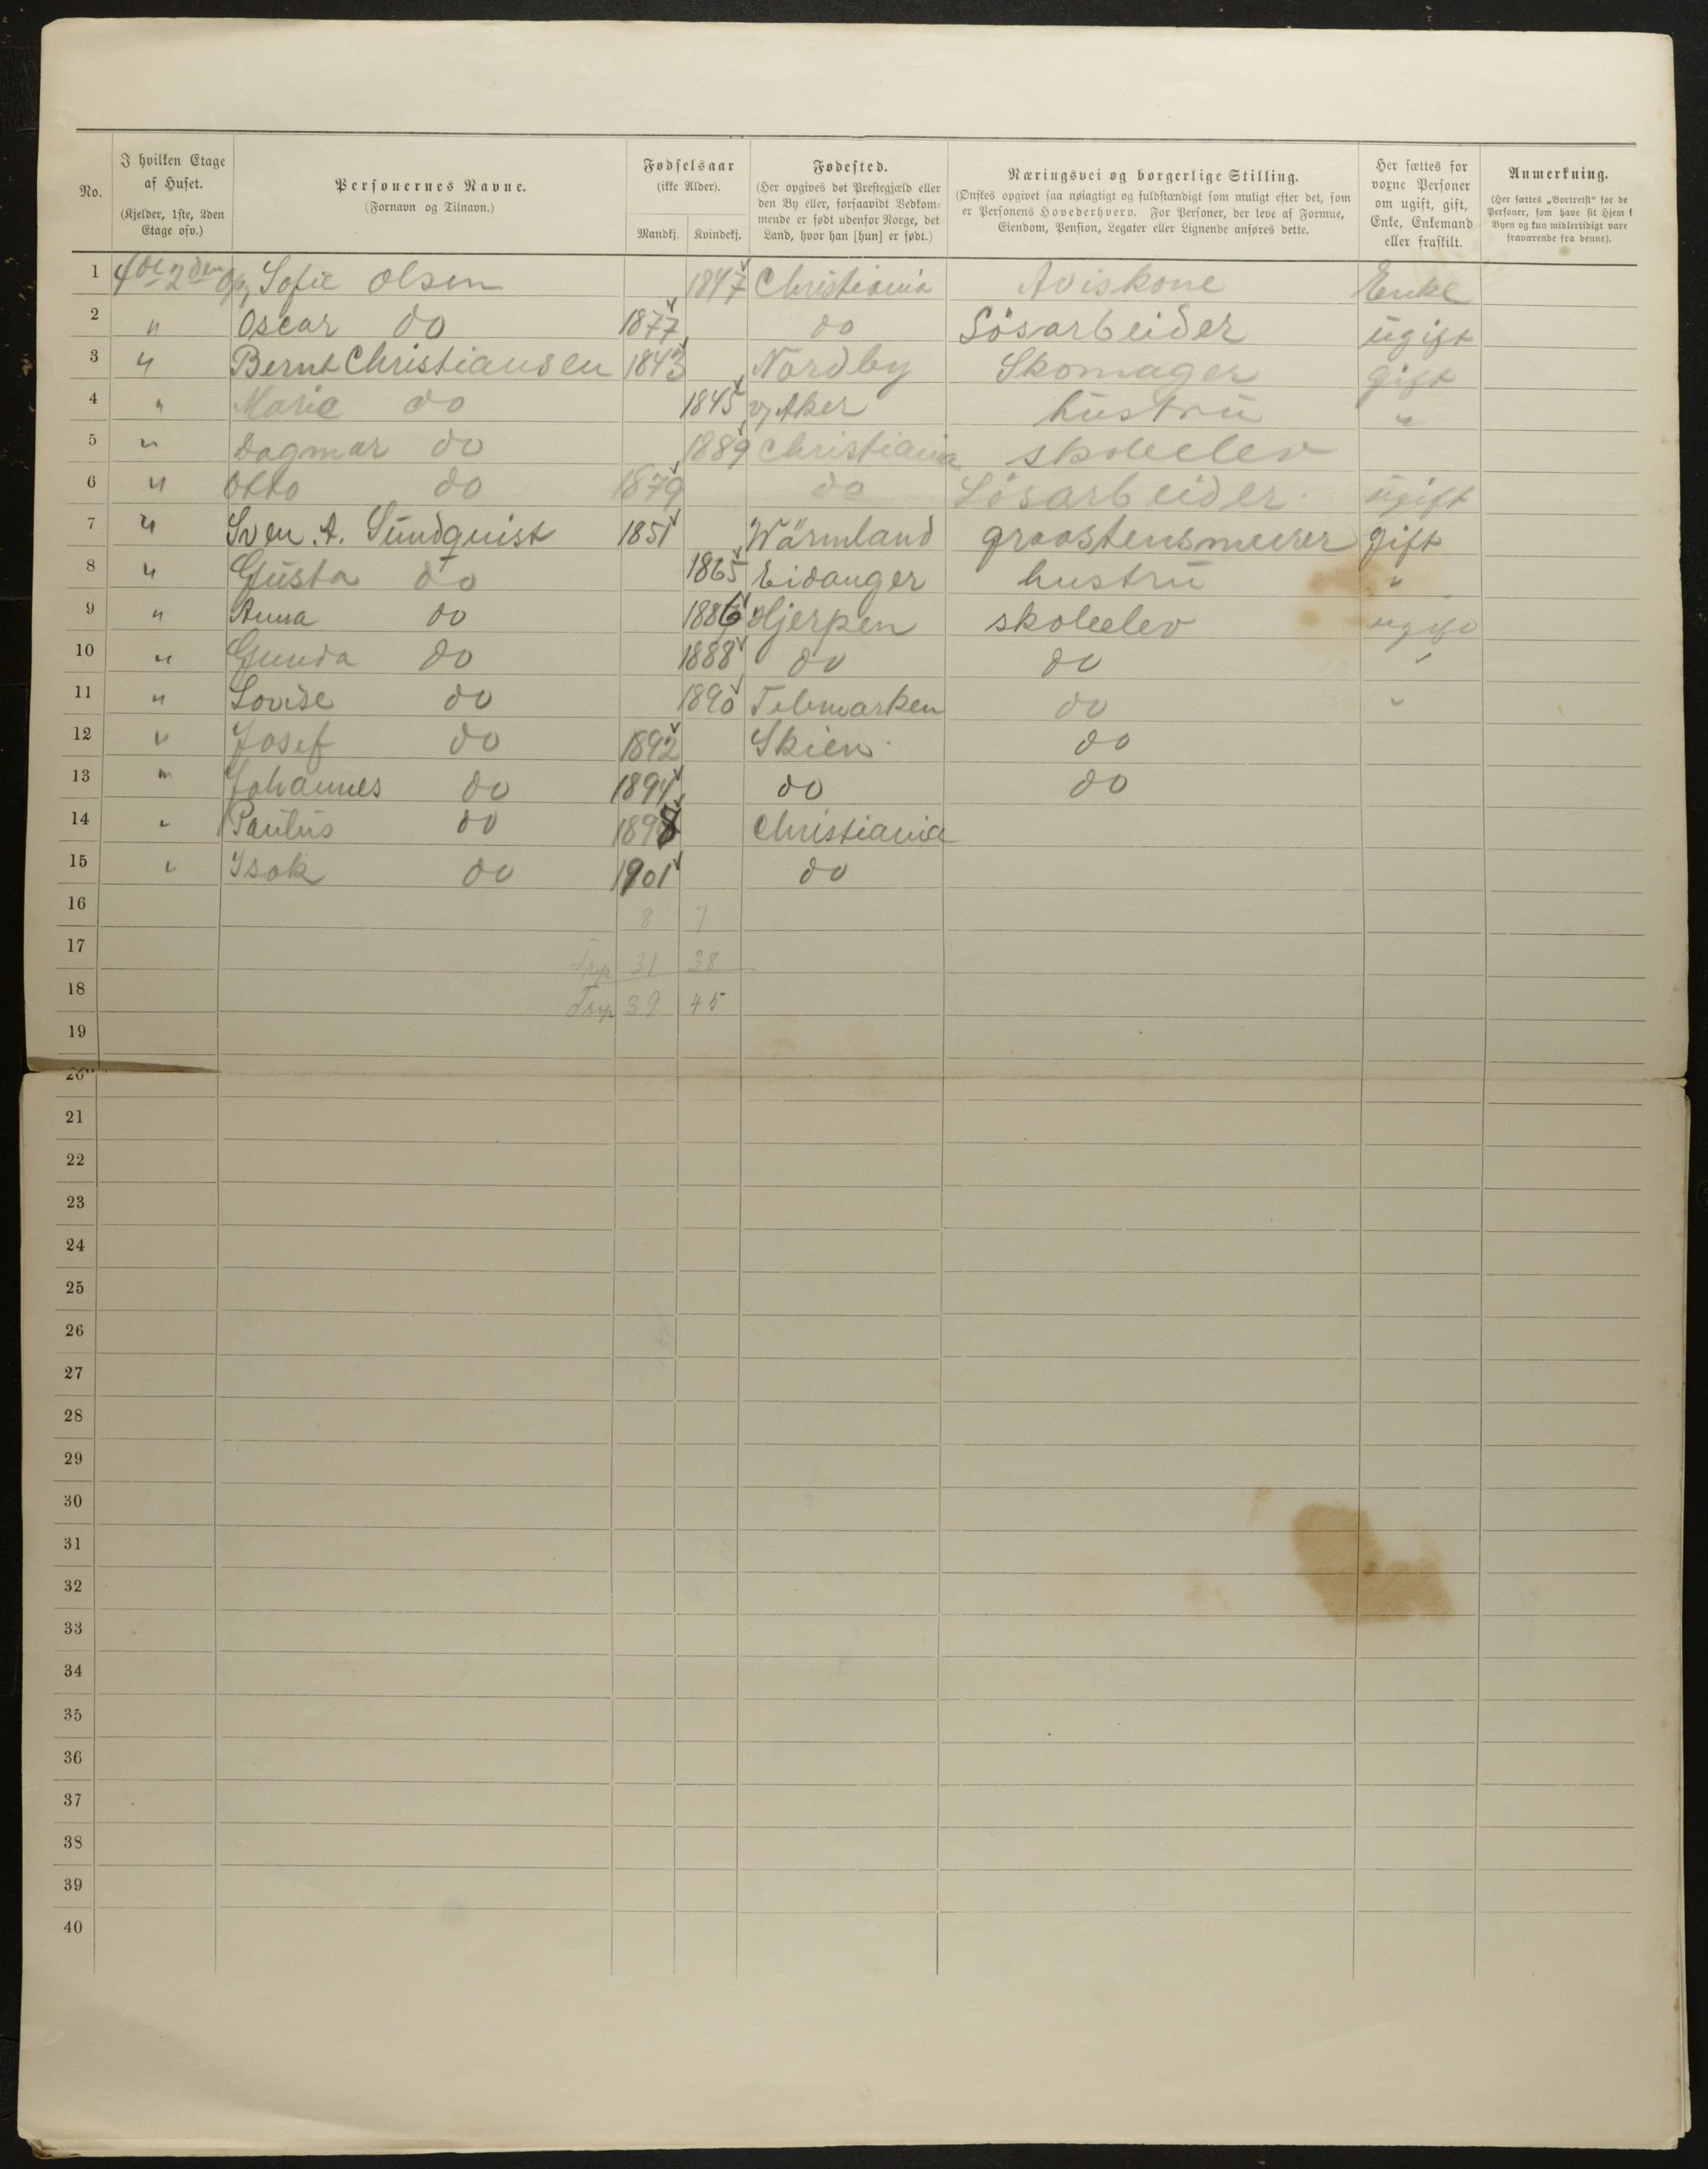 No.
I hvilken Etage
af Huset.
(Kjelder, 1ste, 2den
Etage osv.)
Personernes Navne.
(Fornavn og Tilnavn.)
Fødselsaar
(ikke Alder).
Mandkj. Kvindekj.
Fødested.
(Her opgives det Prestegjæld eller
den By eller, forsaavidt Vedkom-
mende er født udenfor Norge, det
Land, hvor han [hun] er født.)
Næringsvei og borgerlige Stilling.
(Ønskes opgivet saa nøiagtigt og fuldstændigt som muligt efter det, som
er Personens Hovederhverv. For Personer, der leve af Formue,
Eiendom, Pension, Legater eller Lignende anføres dette.
Her sættes for
voxne Personer
om ugift, gift,
Enke, Enkemand
eller fraskilt.
Anmerkning.
(Her sættes „Bortreist“ for de
Personer, som have sit Hjem i
Byen og kun midlertidigt vare
fraværende fra denne).
1 2den Sofie Olsen 1847 Christiania Aviskone Enke
2 " Oscar do 1877 do Lösarbeider ugift
3 " Bernt Christiansen 1843 Nordby Skomager gift
4 " Marie do 1845 Aker hustru "
5 " Dagmar do 1889 Christiania skoleelev
6 " Otto do 1879 do Lösarbeider ugift
7 " Sven A. Sundquist 1851 Wärmland graastensmurer gift
8 " Gusta do 1865 Eidanger hustru "
9 " Anna do 1886 Gjerpen skoleelev ugift
10 " Gunda do 1888 do do "
11 " Lovise do 1890 Telemarken do "
12 " Josef do 1892 Skien do
13 " Johannes do 1894 do do
14 " Paulus do 1898 Christiania
15 " Isak do 1901 do
16 8 7
17 31 38
18 39 45
19
20
21
22
23
24
25
26
27
28
29
30
31
32
33
34
35
36
37
38
39
40